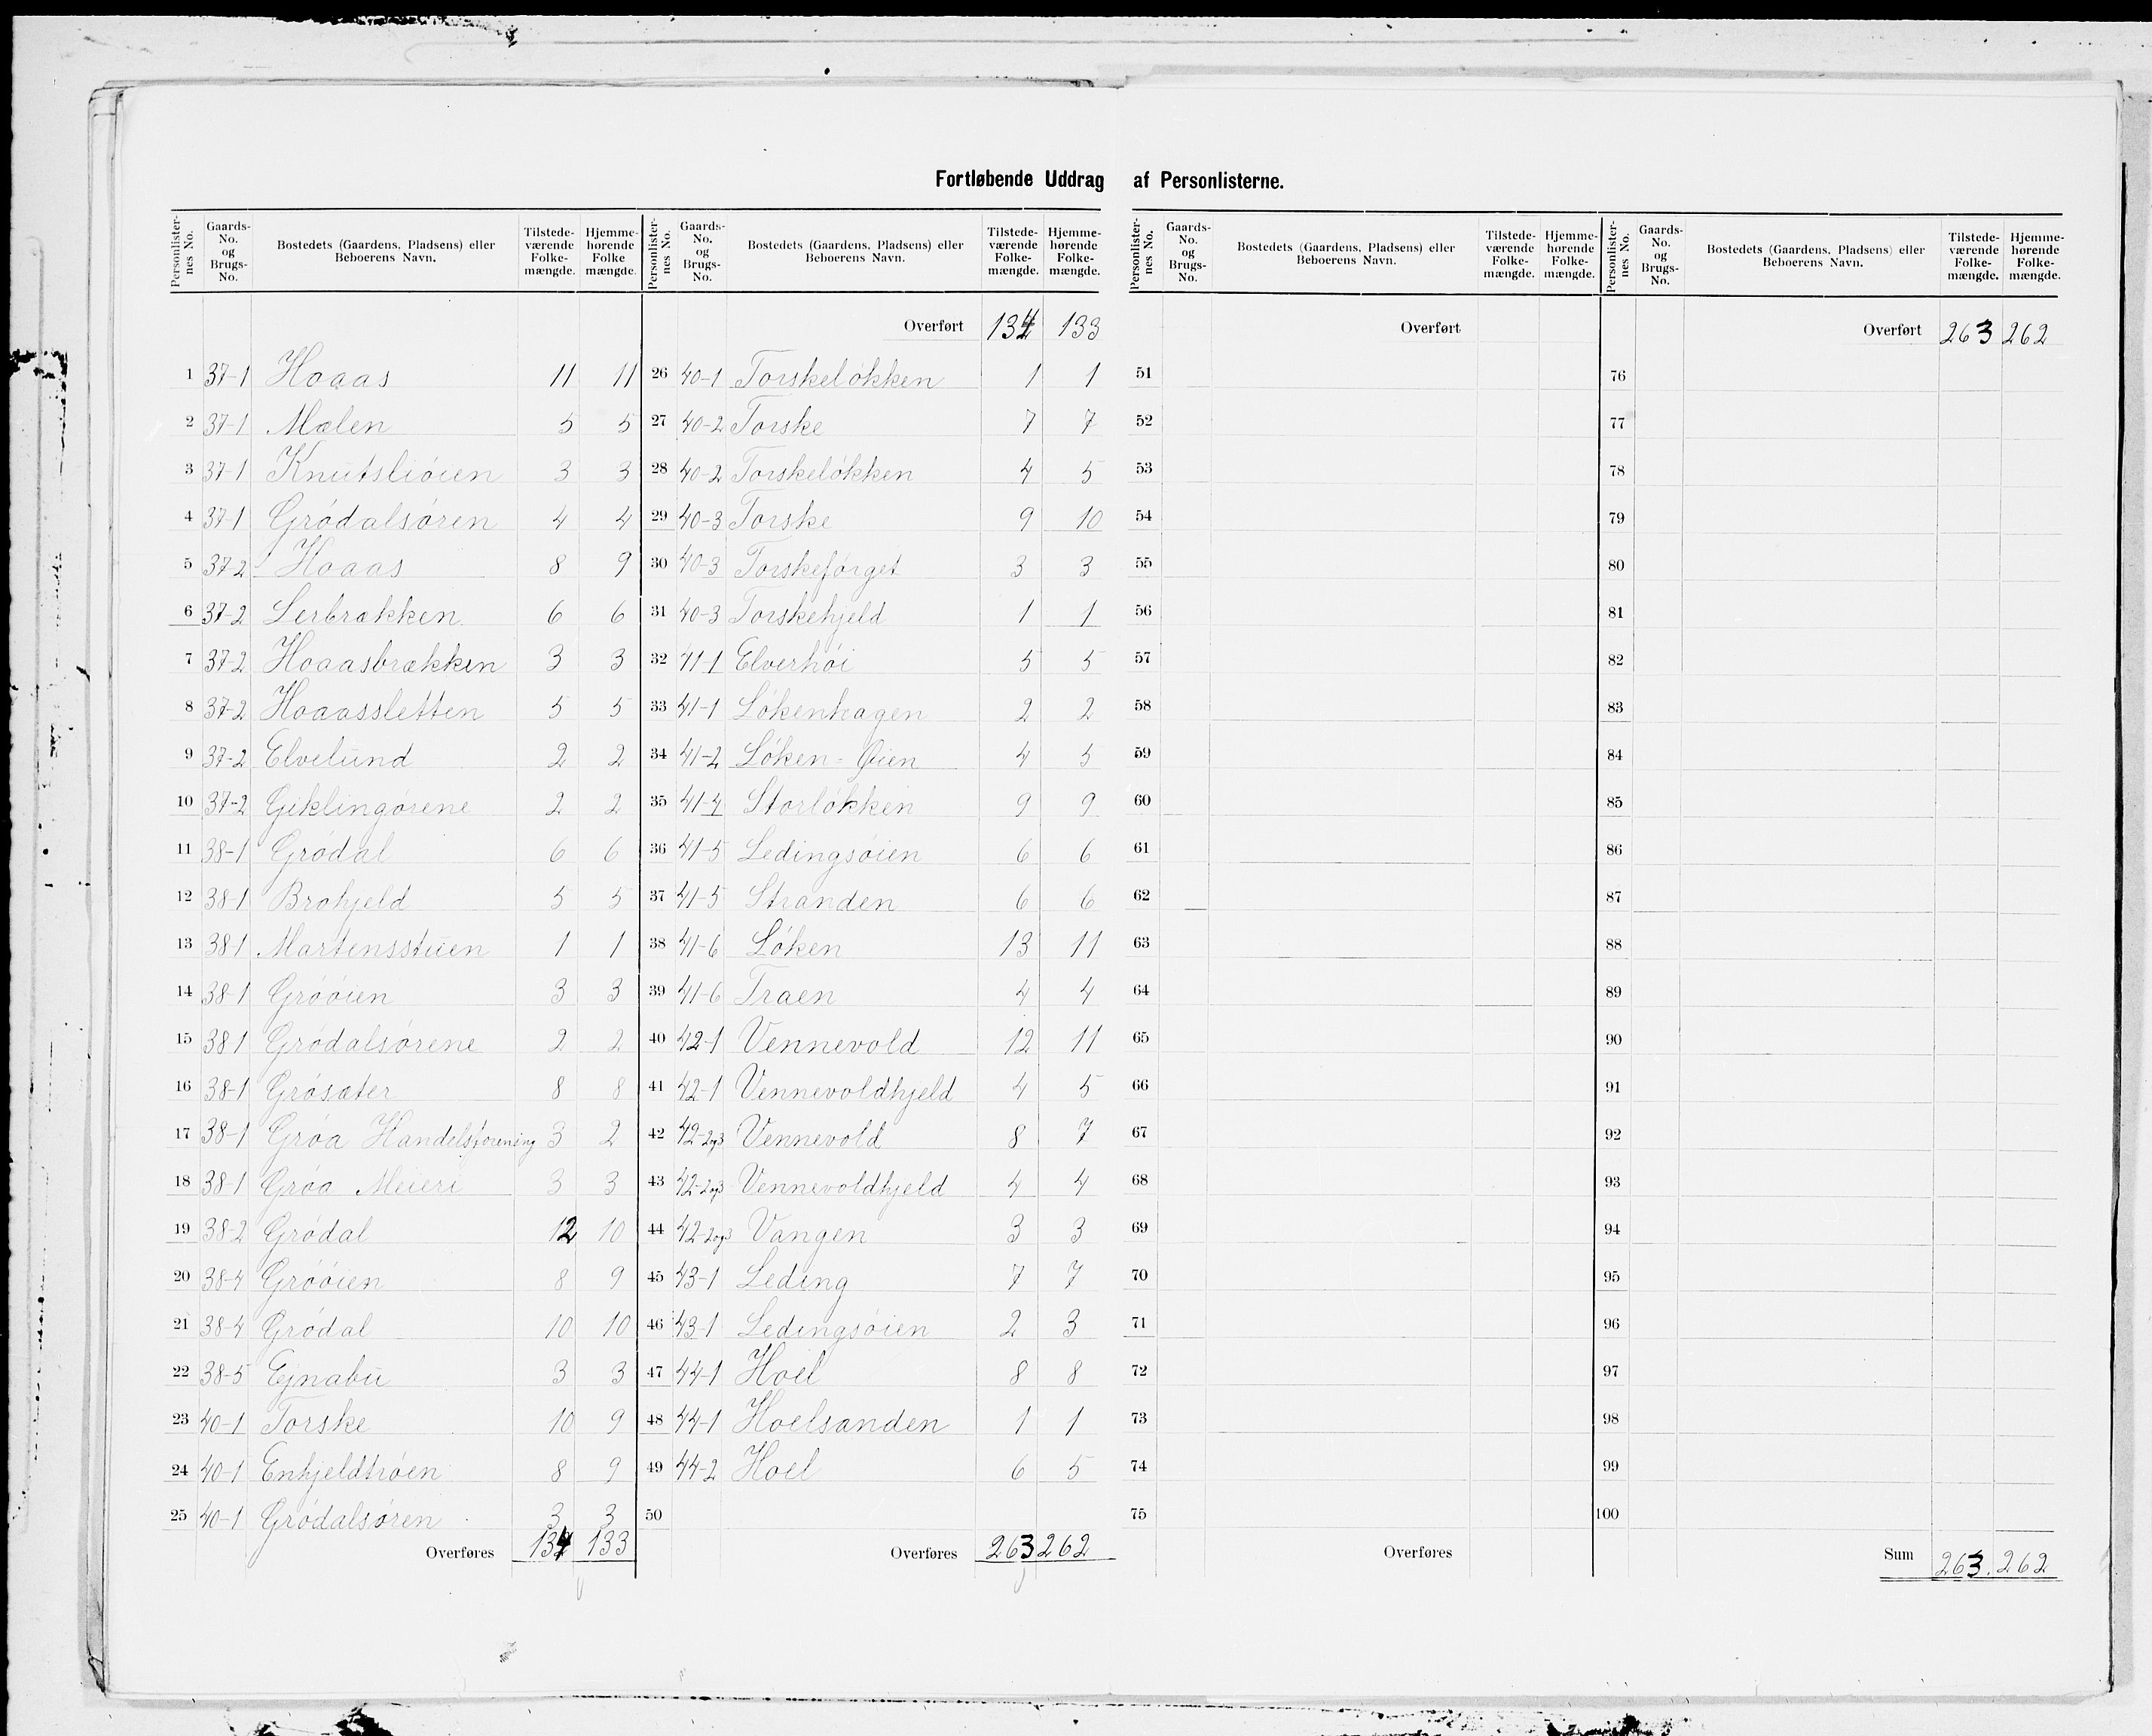 Fortløbende Uddrag af Personlisterne.
Personlister-nes No. Gaards-No. og Brugs-No. Bostedets (Gaardens, Pladsens) eller Beboerens Navn. Tilstede-værende Folke-mængde. Hjemme-hørende Folke mængde.
1 37-1 Hoaas 11 11
2 37-1 Mælen 5 5
3 37-1 Knutsliöien 3 3
4 37-1 Grödalsören 4 4
5 37-2 Hoaas 8 9
6 37-2 Lerbrækken 6 6
7 37-2 Hoaasbrækken 3 3
8 37-2 Hoaassletten 5 5
9 37-2 Elvelund 2 2
10 37-2 Giklingörene 2 2
11 38-1 Grödal 6 6
12 38-1 Brohjeld 5 5
13 38 1 Martensstuen 1 1
14 38-1 Grööien 3 3
15 38 1 Grödalsörene 2 2
16 38-1 Grösæter 8 8
17 38-1 Gröa Handelsforening 3 2
18 38-1 Gröa Meieri 3 3
19 38-2 Grödal 12 10
20 38-4 Gröóien 8 9
21 38-4 Grödal 10 10
22 38-5 Ejnabu 3 3
23 40-1 Torske 10 9
24 40-1 Enhjeldtröen 8 9
25 40-1 Grödalsören 3 3
Overføres 134 133
Personlister-nes No. Gaards-No. og Brugs-No. Bostedets (Gaardens, Pladsens) eller Beboerens Navn. Tilstede-værende Folke-mængde. Hjemme-hørende Folke-mængde.
Overført 134 133
26 40-1 Torskelökken 1 1
27 40-2 Torske 7 7
28 40-2 Torskelökken 4 5
29 40-3 Torske 9 10
30 40-3 Torskeförget 3 3
31 40-3 Torskehjeld 1 1
32 41-1 Elverhöi 5 5
33 41-1 Lökenhagen 2 2
34 41-2 Löken-Øien 4 5
35 41-4 Storlökken 9 9
36 41-5 Ledingsöien 6 6
37 41-5 Stranden 6 6
38 41-6 Löken 13 11
39 41-6 Traen 4 4
40 42-1 Vennevold 12 11
41 42-1 Vennevoldhjeld 4 5
42 42-2og3 Vennevold 8 7
43 42-2og3 Vennevoldhjeld 4 4
44 42-2og3 Vangen 3 3
45 43-1 Leding 7 7
46 43-1 Ledingsöien 2 3
47 44-1 Hoel 8 8
48 44-1 Hoelsanden 1 1
49 44-2 Hoel 6 5
50
Overføres 263 262
Personlister-nes No. Gaards-No. og Brugs-No. Bostedets (Gaardens, Pladsens) eller Beboerens Navn. Tilstede-værende Folke-mængde. Hjemme-hørende Folke-mængde.
Overført
51
52
53
54
55
56
57
58
59
60
61
62
63
64
65
66
67
68
69
70
71
72
73
74
75
Overføres
Personlister-nes No. Gaards-No. og Brugs-No. Bostedets (Gaardens, Pladsens) eller Beboerens Navn. Tilstede-værende Folke-mængde. Hjemme-hørende Folke-mængde.
Overført 263 262
76
77
78
79
80
81
82
83
84
85
86
87
88
89
90
91
92
93
94
95
96
97
98
99
100
Sum 263. 262